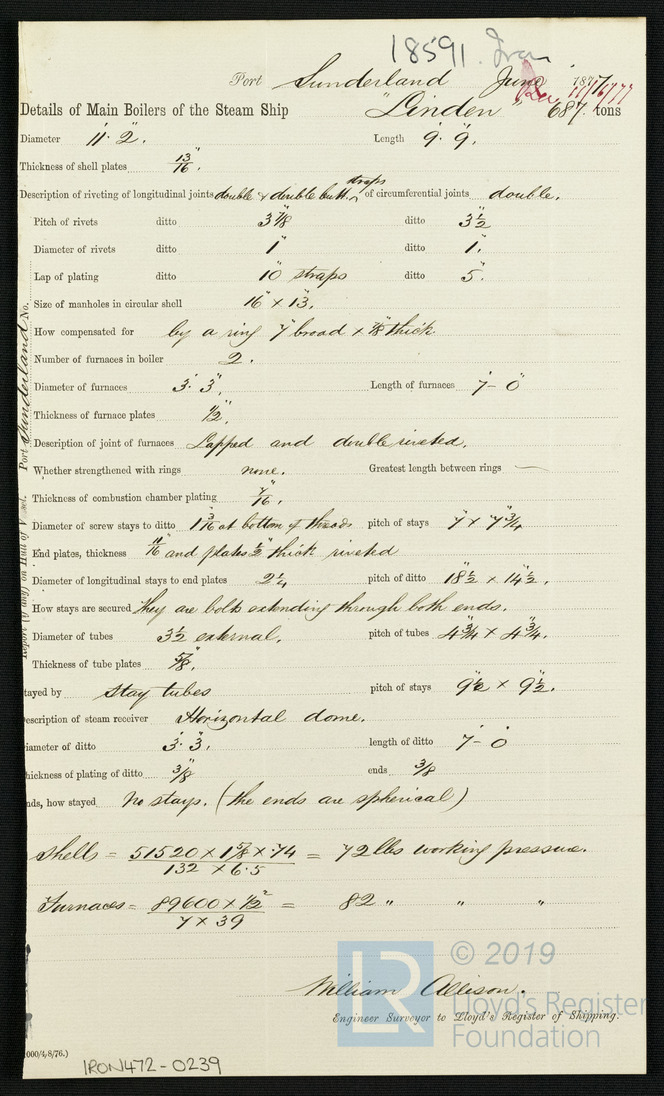 18591. Iron
Port Sunderland June 1877
Rec 11/6/77
Details of Main Boilers of the Steam Ship "Linden" 687 tons
Diameter 11'. 2". Length 9'. 9".
Thickness of shell plates 13/16".
Description of riveting of longitudinal joints double & double butt straps of circumferential joints double.
Pitch of rivets ditto 3 7/8" ditto 3 1/2"
Diameter of rivets ditto 1" ditto 1".
Lap of plating ditto 10" straps ditto 5".
Size of manholes in circular shell 16" x 13".
How compensated for by a ring 7" broad x 7/8" thick
Number of furnaces in boiler 2.
Diameter of furnaces 3'. 3". Length of furnaces 7'- 0"
Thickness of furnace plates 1/2".
Description of joint of furnaces Lapped and double riveted.
Whether strengthened with rings none. Greatest length between rings —
Thickness of combustion chamber plating 7/16".
Diameter of screw stays to ditto 1 3/16" at bottom of threads pitch of stays 7" x 7 3/4"
End plates, thickness 11/16" and plates 1/2" thick riveted
Diameter of longitudinal stays to end plates 2 1/4" pitch of ditto 18 1/2" x 14 1/2".
How stays are secured They are bolts extending through both ends.
Diameter of tubes 3 1/2" external. pitch of tubes 4 3/4" x 4 3/4".
Thickness of tube plates 5/8".
tayed by Stay tubes pitch of stays 9 1/2" x 9 1/2".
escription of steam receiver Horizontal dome.
iameter of ditto 3'. 3". length of ditto 7'- 0"
hickness of plating of ditto 3/8" ends 3/8"
nds, how stayed No stays. (the ends are spherical)
Shells = 51520 x 1 5/8 x .74 / 132 x 6.5 = 72 lbs working pressure.
Furnaces = 89600 x 1/2² / 7 x 39 = 82 " " "
William Allison.
Engineer Surveyor to Lloyd's Register of Shipping.
000/4/8/76.)
IRON472-0239
Report (if any) on Hull of Vessel. Port Sunderland No.
LR © 2019
Lloyd's Register
Foundation